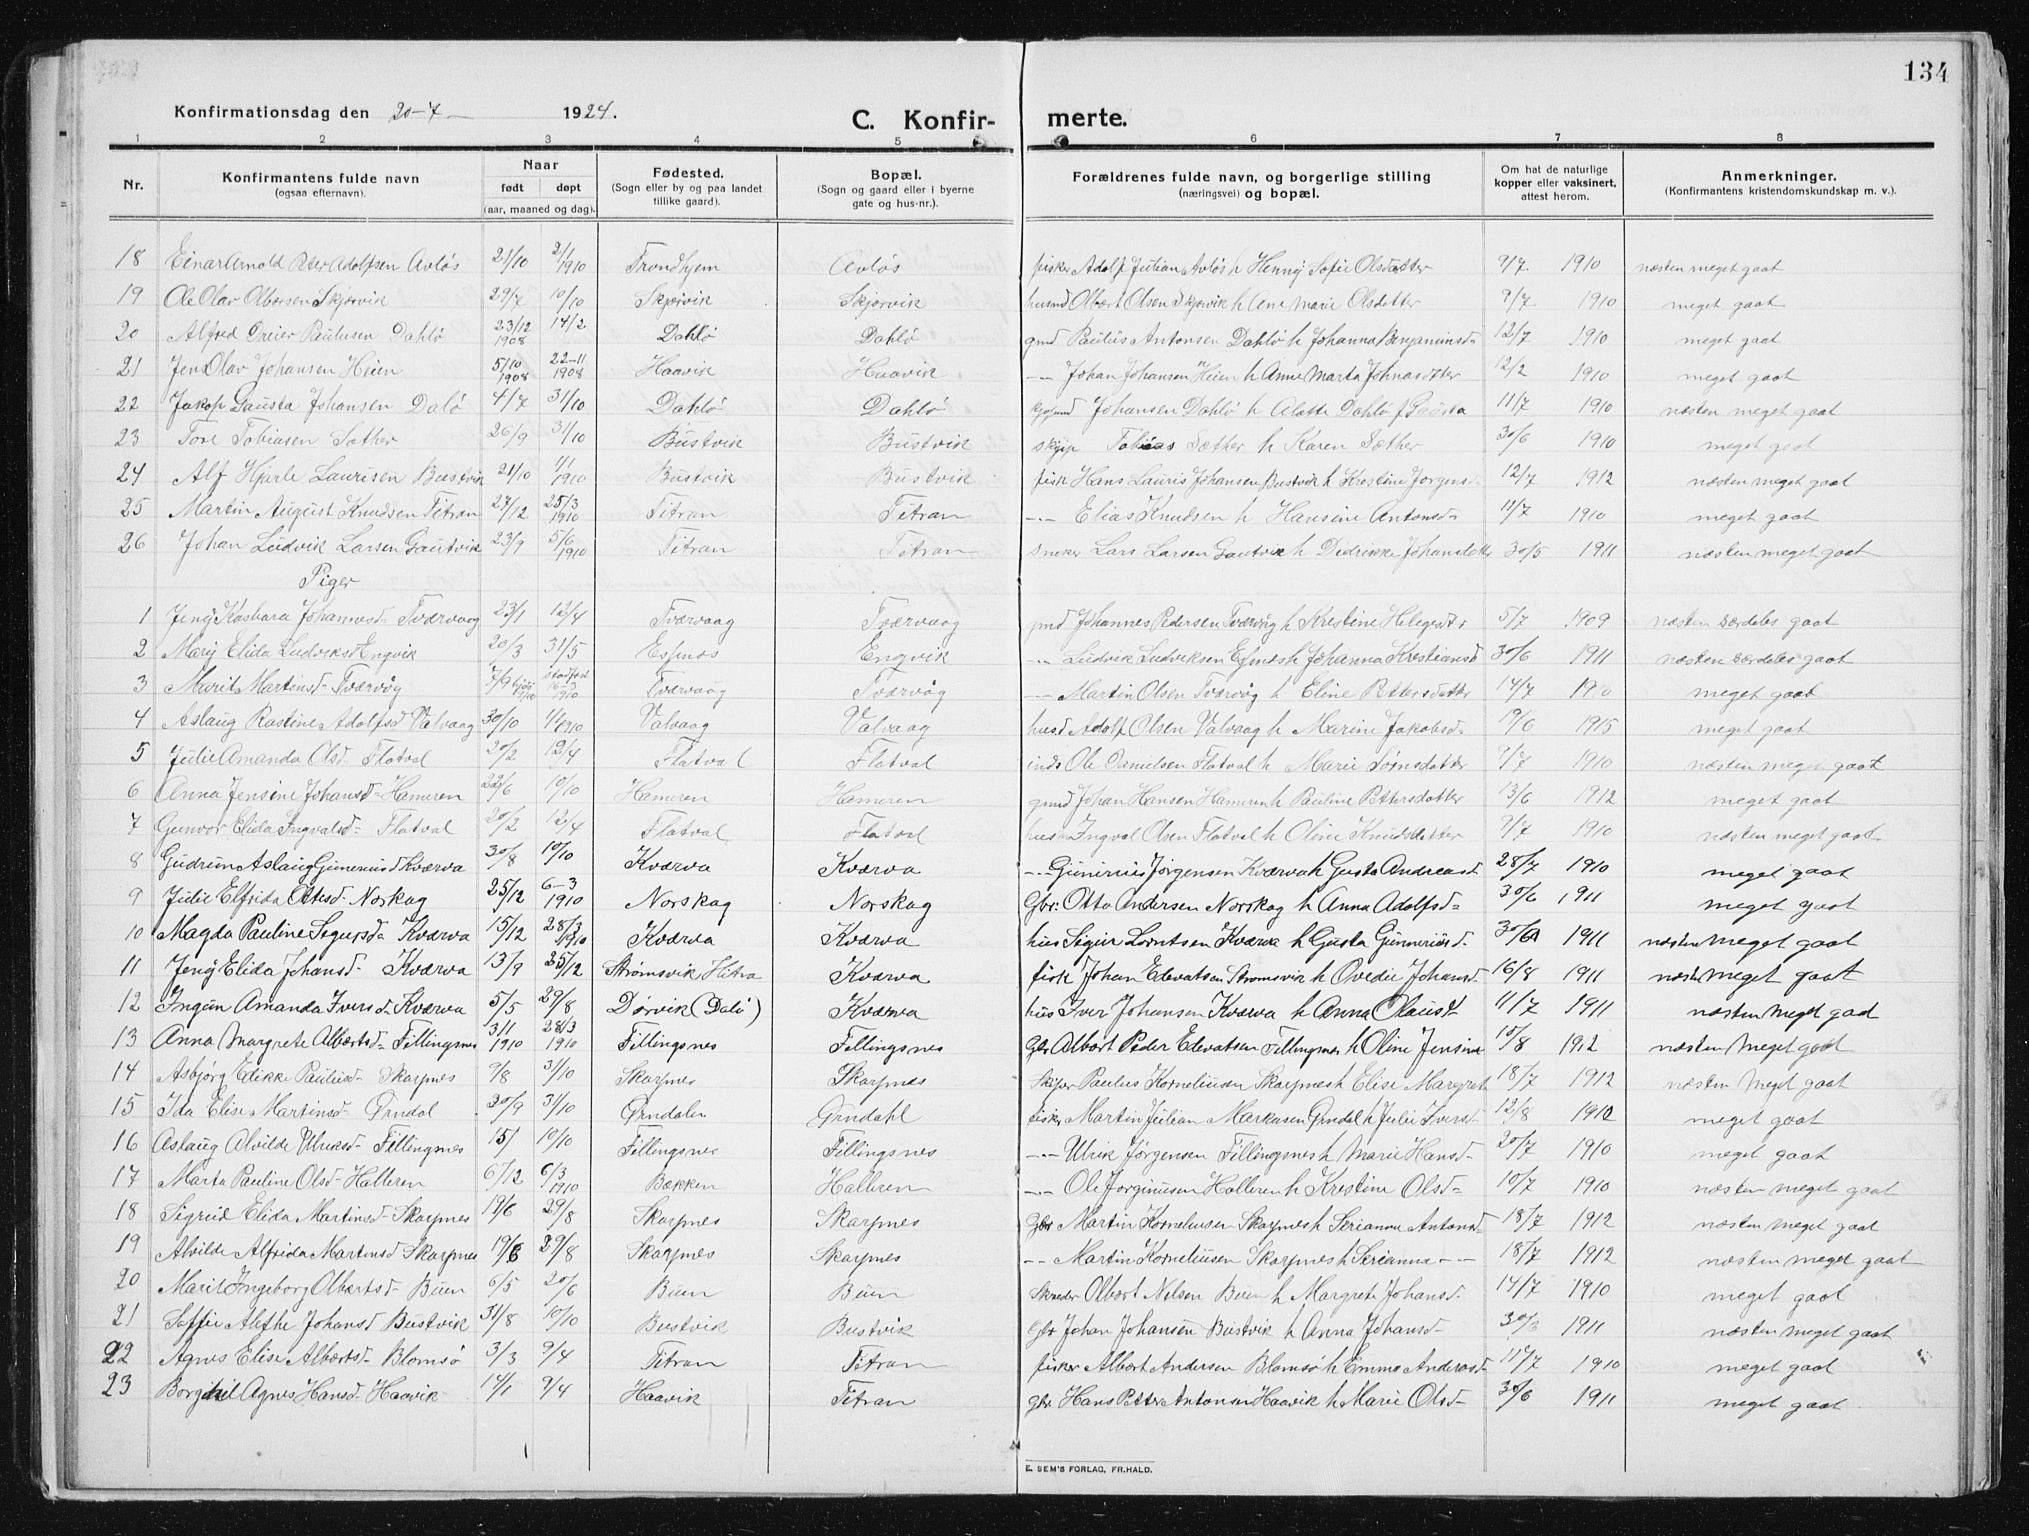 134
Konfirmationsdag den 20-7- 1924.
C. Konfir- merte.
1 2 3 4 5 6 7 8
Nr.
Konfirmantens fulde navn
(ogsaa efternavn).
Naar
født døpt
(aar, maaned og dag).
Fødested.
(Sogn eller by og paa landet
tillike gaard).
Bopæl.
(Sogn og gaard eller i byerne
gate og hus-nr.).
Forældrenes fulde navn, og borgerlige stilling
(næringsvei) og bopæl.
Om hat de naturlige
kopper eller vaksinert,
attest herom.
Anmerkninger.
(Konfirmantens kristendomskundskap m. v.).
18 Einar Arnold Peter Adolfsen Avløs 21/10 2/1 1910 Trondhjem Avløs fisker Adolf Julian Avløs h Henny Sofie Olsdatter 9/7 1910 næsten meget gaat
19 Ole Olav Olbersen Skjærvik 29/7 10/10 Skjærvik Skjærvik husmd Olbert Olsen Skjærvik h Ane Marie Olsdetter 9/7 1910 meget gaat
20 Alfred Dreier Paulusen Dahlø 23/12 1908 14/2 Dahlø Dahlø gmd Paulus Antonsen Dahlø h Johanna Benjaminsd- 12/7 1910 meget gaat
21 Jens Olav Johansen Heien 5/10 1908 22-11 1908 Haavik Haavik -"- Johan Johansen Heien h Anne Marta Johnasdtter 12/2 1910 meget gaat
22 Jakop Gausta Johansen Dalø 4/7 31/10 Dahlø Dahlø Johansen Dahlø h Alette Dahlø f Gausta 11/7 1910 næsten meget gaat
23 Tore Tobiasen Sather 26/9 31/10 Bustvik Bustvik skipp Tobias Sæther h Karen Sæther 30/6 1910 meget gaat
24 Alf Hjarle Laurisen Bustvik 21/10 1/1 1910 Bustvik Bustvik fisk Hans Lauris Johansen Bustvik h Krestine Jørgensd- 12/7 1912 næsten meget gaat
25 Martin August Knudsen Titran 27/12 25/3 1910 Titran Titran -"- Elias Knudsen h Hansine Antonsd- 11/7 1910 meget gaat
26 Johan Ludvik Larsen Gautvik 23/9 5/6 1910 Titran Titran sneker Lars Larsen Gautvik h Didrikke Johansdatter 30/5 1911 næsten meget gaat
Piger
1 Jeny Kasbara Johannesd- Tværvaag 23/1 12/4 Tværvaag Tværvaag gmd Johannes Pedersen Tværvåg h Krestine Helgesdtr 5/7 1909 næsten særdeles gaat
2 Mary Elida Ludviksd Engvik 20/3 31/5 Espnes Engvik -"- Ludvik Ludviksen Espnes h Johanna Krestiansd 30/6 1911 næsten særdeles gaat
3 Marit Martinsd- Tværvåg 7/9 16-3 1910 Tværvaag Tværvåg -"- Martin Olsen Tværvåg h Eline Pettersdatter 14/7 meget gaat
4 Aslaug Rastine Adolfsd Valvaag 30/10 1/1 1910 Valvaag Valvaag husd Adolf Olsen Valvaag h Marine Jakobsd- 9/6 1915 meget gaat
5 Julie Amanda Olsd- Flatval 20/2 12/4 Flatval Flatval inds Ole Danielsen Flatval h Marie Sørnsdatter 9/7 1910 næsten meget gaat
6 Anna Jensine Johansd- Hameren 22/6 10/10 Hameren Hameren gmd Johan Hansen Hameren h Pauline Pettersdatter 13/6 1912 meget gaat
7 Gunvor Elida Ingvalsd- Flatval 20/2 12/4 Flatval Flatval husm Ingval Olsen Flatval h Oline Knudsdatter 9/7 1910 næsten meget gaat
8 Gudrun Aslaug Gunneriusd Kværva 30/8 10/10 Kværva Kværva -"- Gunerius Jørgensen Kværva h Gusta Andreasd 28/7 1910 meget gaat
9 Julie Elfrida Ottesd- Norskag 25/12 6-3 1910 Norskag Norskag Gbr: Otto Andersen Norskag h Anna Adolfsd= 30/6 1911 meget gaat
10 Magda Pauline Sigursda Kværva 15/12 28/3 1910 Kværva Kværva hus Sigur Lorntsen Kværva h Gusta Gunneriusd. 30/6 1911 næsten meget gaat
11 Jeny Elida Johansd- Kværva 13/9 25/12 Strømsvik Hitra Kværva fisk Johan Edevatsen Strømsvik h Ovedie Johansd- 16/8 1911 næste meget gaat
12 Ingun Amanda Iversd- Kværva 5/5 29/8 Dørvik (Dalø) Kværva hus Iver Johansen Kværva h Anna Olausd 11/7 1911 næsten meget gad
13 Anna Margrete Albertsd= Fillingsnes 3/1 1910 28/3 1910 Fillingsnes Fillingsnes Gbr Albert Peder Edevatsen Fillingsnes h Oline Jensine 10/8 1912 næsten meget gaat
14 Asbjørg Edikke Paulusd- Skarpnes 9/8 31/10 Skarpnes Skarpnes Skiper Paulus Korneliusen Skarpnes h Elise Margrete 18/7 1912 næsten meget gaat
15 Ida Elise Martinsd- Ørndal 20/9 31/10 Ørndalen Ørndahl fisker Martin Julian Markusen Ørndal h Julie Iversd- 12/8 1910 meget gaat
16 Aslaug Alvilde Ulriksd- Fillingsnes 15/ 10/10 Fillingsnes Fillingsnes -"- Ulrik Jørgensen Fillingsnes h Marie Hansd- 20/7 1910 meget gaat
17 Marta Pauline Olsd- Halleren 6/12 6/3 1910 Bækken Halleren -"- Ole Jorginusen Halleren h Krestine Olsd= 10/7 1910 næsten meget gaat
18 Sigrud Elida Martinsd- Skarpnes 19/6 29/8 Skarpnes Skarpnes Gbr Martin Korneliusen Skarpnes h Serianna Antonsd- 18/7 1912 næsten meget gaat
19 Alvilde Alfrida Martinsd Skarpnes 19/6 29/8 Skarpnes Skarpnes -"- Martin Korneliusen Skarpnes h Serianna -"- 18/7 1912 næsten meget gaat
20 Marit Ingeborg Olbertsd- Buen 6/5 20/6 Buen Buen Skreder Olbert Nelsen Buen h Margrete Johansd- 14/7 1910 meget gaat
21 Soffie Alefthe Johansd Bustvik 31/8 10/10 Bustvik Bustvik Gbr Johan Johansen Bustvik h Anna Johansd- 30/6 1911 næsten meget gaat
22 Agnes Elise Albertsd- Blomsø 3/3 9/4 Titran Titran fisker Albert Andersen Blomsø h Emma Andrasd- 11/7 1910 meget gaat
23 Borghil Agnes Hansd- Haavik 14/1 9/4 Haavik Titran gbr. Hans Petter Antonsen Haavik h Marie Olsd- 30/6 1911 meget gaat
E. SEM'S FORLAG, FR.HALD.